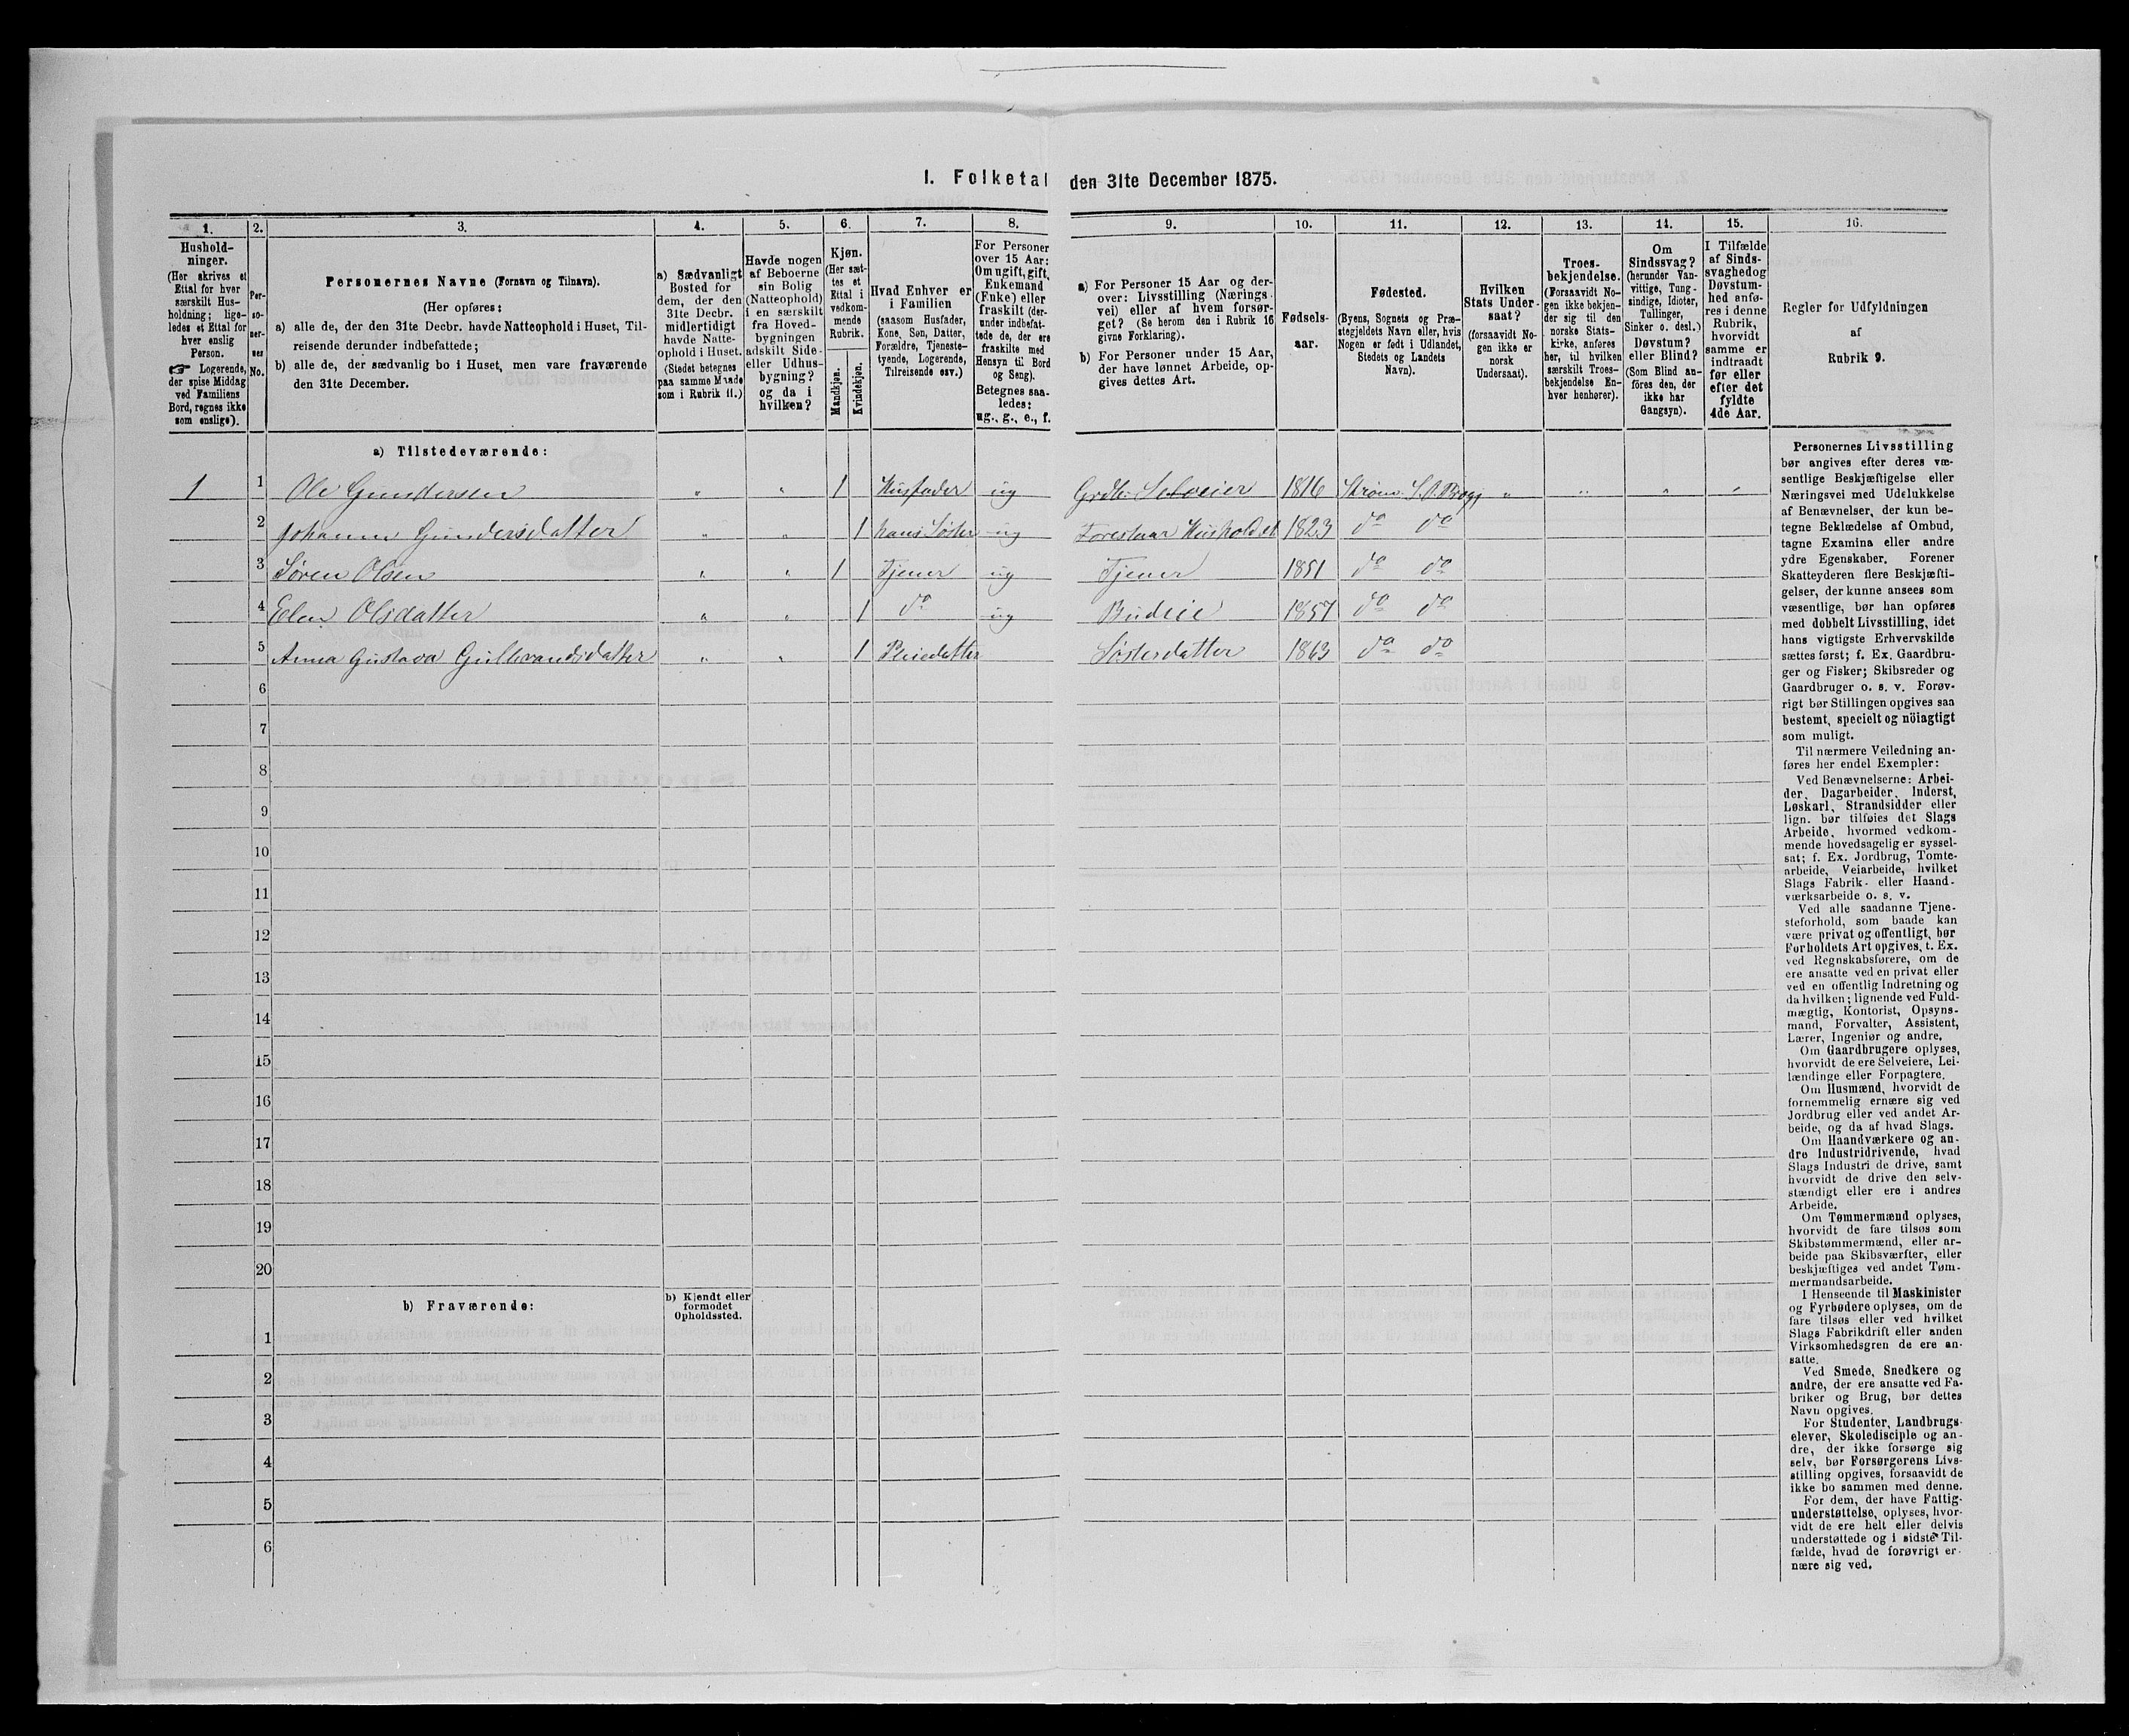 I. Folketal den 31te December 1875.
1. 2. 3. 4. 5. 6. 7. 8. 9. 10. 11. 12. 13. 14. 15. 16.
Hushold-
ninger.
(Her skrives et
Ettal for hver
særskilt Hus-
holdning; lige-
ledes et Ettal for
hver enslig
Person.
☞ Logerende,
der spise Middag
ved Familiens
Bord, regnes ikke
som enslige).
Per-
so-
ner-
nes
No.
Personernes Navne (Fornavn og Tilnavn).
(Her opføres:
a) alle de, der den 31te Decbr. havde Natteophold i Huset, Til-
reisende derunder indbefattede;
b) alle de, der sædvanlig bo i Huset, men vare fraværende
den 31te December.
a) Sædvanligt
Bosted for
dem, der den
31te Decbr.
midlertidigt
havde Natte-
ophold i Huset.
(Stedet betegnes
paa samme Maade
som i Rubrik 11.)
Havde nogen
af Beboerne
sin Bolig
(Natteophold)
i en særskilt
fra Hoved-
bygningen
adskilt Side-
eller Udhus-
bygning?
og da i
hvilken?
Kjøn.
(Her sæt-
tes et
Ettal i
vedkom-
mende
Rubrik.
Mandkjøn.
Kvindekjøn.
Hvad Enhver er
i Familien
(saasom Husfader,
Kone, Søn, Datter,
Forældre, Tjeneste-
tyende, Logerende,
Tilreisende osv.)
For Personer
over 15 Aar:
Om ugift, gift,
Enkemand
(Enke) eller
fraskilt (der-
under indbefat-
tede de, der ere
fraskilte med
Hensyn til Bord
og Seng).
Betegnes saa-
ledes:
ug., g., e., f.
a) For Personer 15 Aar og der-
over: Livsstilling (Nærings-
vei) eller af hvem forsør-
get? (Se herom den i Rubrik 16
givne Forklaring).
b) For Personer under 15 Aar,
der have lønnet Arbeide, op-
gives dettes Art.
Fødsels-
aar.
Fødested.
(Byens, Sognets og Præ-
stegjeldets Navn eller, hvis
Nogen er født i Udlandet,
Stedets og Landets
Navn).
Hvilken
Stats Under-
saat?
(forsaavidt No-
gen ikke er
norsk
Undersaat).
Troes-
bekjendelse.
(Forsaavidt No-
gen ikke bekjen-
der sig til den
norske Stats-
kirke, anføres
her, til hvilken
særskilt Troes-
bekjendelse En-
hver henhører).
Om
Sindssvag?
(herunder Van-
vittige, Tung-
sindige, Idioter,
Tullinger,
Sinker o. desl.)
Døvstum?
eller Blind?
(Som Blind an-
føres den, der
ikke har
Gangsyn).
I Tilfælde
af Sinds-
svaghed og
Døvstum-
hed anfø-
res i denne
Rubrik,
hvorvidt
samme er
indtraadt
før eller
efter det
fyldte
4de Aar.
Regler for Udfyldningen
af
Rubrik 9.
a) Tilstedeværende:
1 1 Ole Gundersen " " 1 Husfader ug Grdbr. Selveier 1816 Strøm S. O. " " " "
2 Johanne Gundersdatter " " 1 hans Søster ug Forestaar Husholdet 1823 do do
3 Søren Olsen " " 1 Tjener ug Tjener 1851 do do
4 Elen Olsdatter " " 1 do ug Budeie 1857 do do
5 Anna Gustava Gulbrandsdatter " " 1 Pleiedatter Søsterdatter 1863 do do
6
7
8
9
10
11
12
13
14
15
16
17
18
19
20
b) Fraværende:
b) Kjendt eller
formodet
Opholdssted.
1
2
3
4
5
6
Personernes Livsstilling
bør angives efter deres væ-
sentlige Beskjæftigelse eller
Næringsvei med Udelukkelse
af Benævnelser, der kun be-
tegne Beklædelse af Ombud,
tagne Examina eller andre
ydre Egenskaber. Forener
Skatteyderen flere Beskjæfti-
gelser, der kunne ansees som
væsentlige, bør han opføres
med dobbelt Livsstilling, idet
hans vigtigste Erhvervskilde
sættes først; f. Ex. Gaardbru-
ger og Fisker; Skibsreder og
Gaardbruger o. s. v. Forøv-
rigt bør Stillingen opgives saa
bestemt, specielt og nöiagtigt
som muligt.
Til nærmere Veiledning an-
føres her endel Exempler:
Ved Benævnelserne: Arbei-
der, Dagarbeider, Inderst,
Løskarl, Strandsidder eller
lign. bør tilføies det Slags
Arbeide, hvormed vedkom-
mende hovedsagelig er syssel-
sat; f. Ex. Jordbrug, Tomte-
arbeide, Veiarbeide, hvilket
Slags Fabrik- eller Haand-
værksarbeide o. s. v.
Ved alle saadanne Tjene-
steforhold, som baade kan
være privat og offentligt, bør
Forholdets Art opgives, t. Ex.
ved Regnskabsførere, om de
ere ansatte ved en privat eller
ved en offentlig Indretning og
da hvilken; lignende ved Fuld-
mægtig, Kontorist, Opsyns-
mand, Forvalter, Assistent,
Lærer, Ingeniør og andre.
Om Gaardbrugere oplyses,
hvorvidt de ere Selveiere, Lei-
lændinge eller Forpagtere.
Om Husmænd, hvorvidt de
fornemmelig ernære sig ved
Jordbrug eller ved andet Ar-
beide, og da af hvad Slags.
Om Haandværkere og an-
dre Industridrivende, hvad
Slags Industri de drive, samt
hvorvidt de drive den selv-
stændigt eller ere i andres
Arbeide.
Om Tømmermænd oplyses,
hvorvidt de fare tilsøs som
Skibstømmermænd, eller ar-
beide paa Skibsværfter, eller
beskjæftiges ved andet Tøm-
mermandsarbeide.
I Henseende til Maskinister
og Fyrbødere oplyses, om de
fare tilsøs eller ved hvilket
Slags Fabrikdrift eller anden
Virksomhedsgren de ere an-
satte.
Ved Smede, Snedkere og
andre, der ere ansatte ved Fa-
briker og Brug, bør dettes
Navn opgives.
For Studenter, Landbrugs-
elever, Skoledisciple og an-
dre, der ikke forsørge sig
selv, bør Forsørgerens Livs-
stilling opgives, forsaavidt de
ikke bo sammen med denne.
For dem, der have Fattig-
understøttelse, oplyses, hvor-
vidt de ere helt eller delvis
understøttede og i sidste Til-
fælde, hvad de forøvrigt er-
nære sig ved.